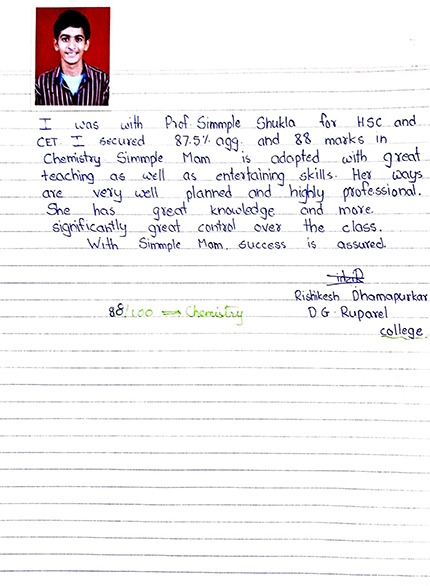 I was with Prof. Simmple Shukla for HSC and
CET. I secured 87.5% agg. and 88 marks in
Chemistry Simmple Mam is adapted with great
teaching as well as entertaining skills. Her ways
are very well planned and highly professional.
She has great knowledge and more
significantly great control over the class.
With Simmple Mam, success is assured.
Rishikesh Dhamapurkar
88/100 ⇒ Chemistry
D G Ruparel
college.